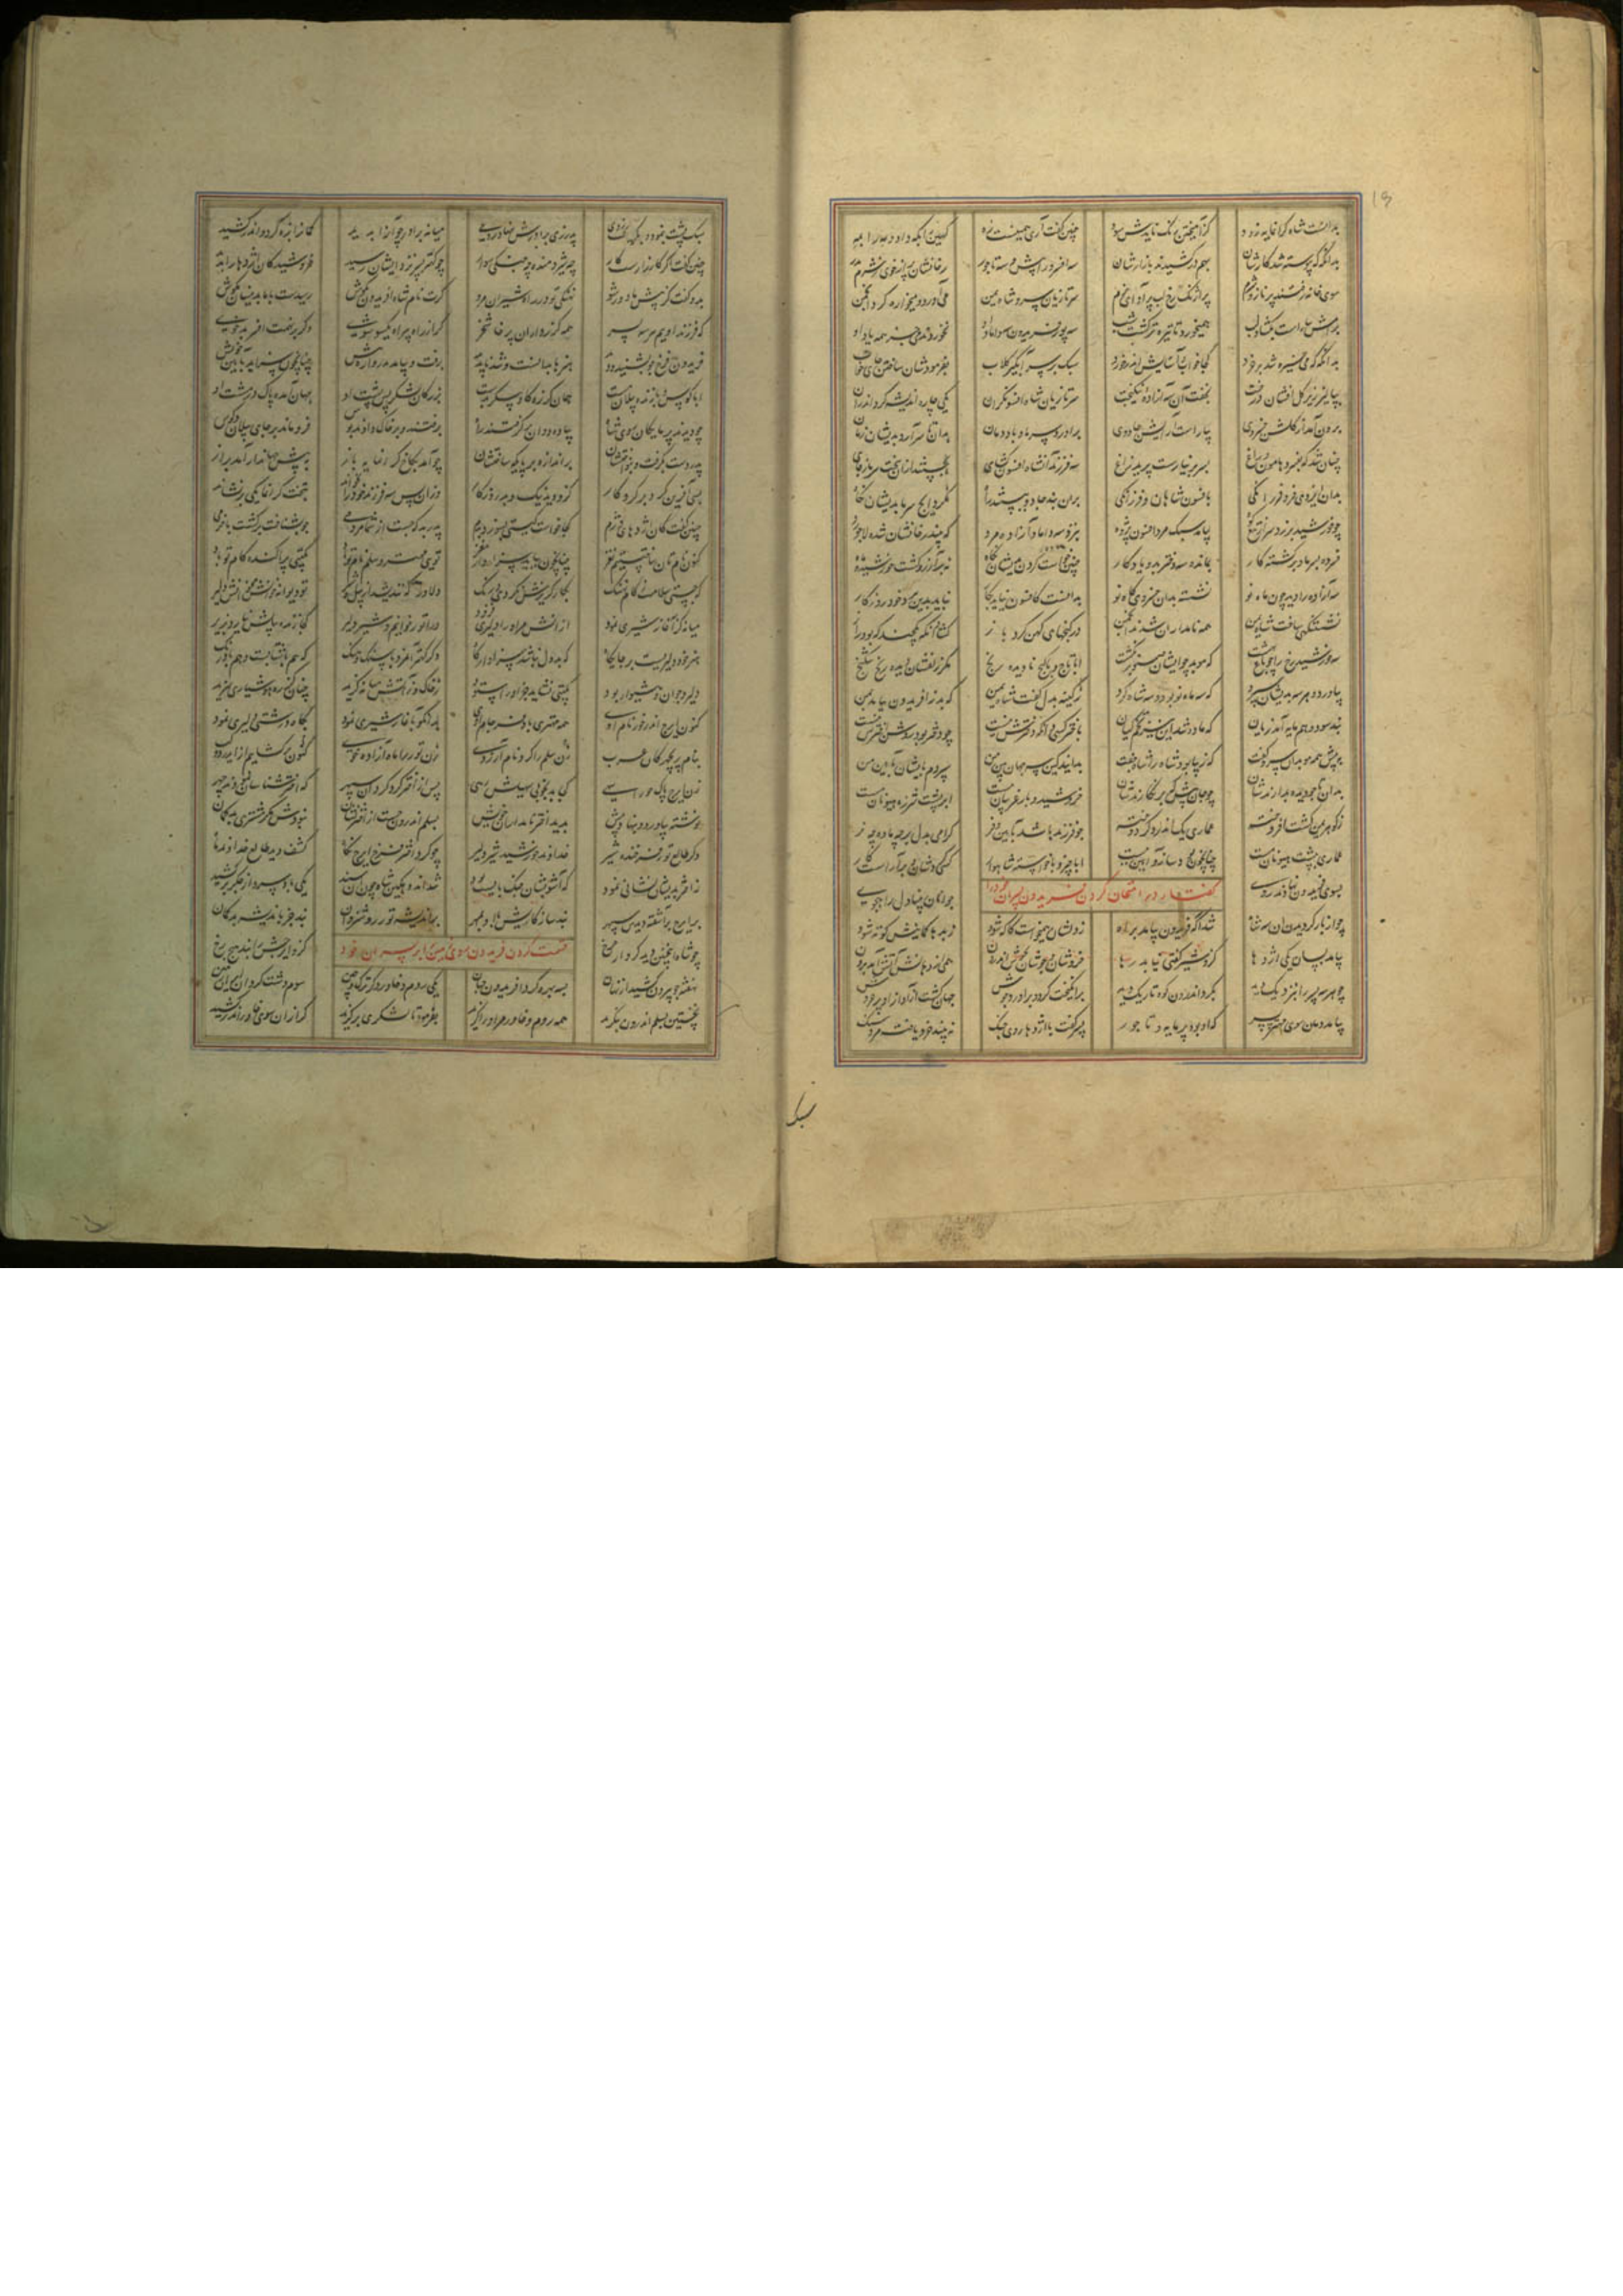 بدانست شاه گرانمایه زود کز آمیختن رنگ نایدش سود چنین گفت آری همینست زه کهین را بکه داد و مه را بمه
بدانگه که پیوسته شد کارشان بهم در کشیدند بازارشان سه افسر ور از پیش سه تاجور رخانشان پر از خوی ز شرم پدر
سوی خانه رفتند پر ناز و شرم پر از رنگ رخ لب پر آوای نرم سر تازیان سرو شاه یمن می آورد و میخواره کرد انجمن
برامش بیاراست بگشاد لب همیخورد تا تیره تر گشت شب سه پور فریدون سه داماد او نخوردند می جز همه یاد او
بدانگه که می چیره شد بر خرد کجا خواب و آسایش اندر خورد سبک بر سر آبگیر گلاب بفرمودشان ساختن جای خواب
بپالیز زیر گل افشان درخت بخفت آن سه آزاده نیکبخت سر تازیان شاه افسونگران یکی چاره اندیشه کرد اندران
برون آمد از گلشن خسروی بیاراست آرایش جادوی برآورد سرما و باد دمان بدان تا سر آرد بدیشان زمان
چنان شد که بفسرد هامون و راغ بسر بر نیارست پرید زاغ سه فرزند آن شاه افسون گشای بجستند ازان سخت سرما ز جای
بدان ایزدی فر و فرزانگی بافسون شاهان و فرزانگی بران بند جادو ببستند راه نکرد ایچ سرما بدیشان نگاه
چو خورشید بر زد سر از تیغ کوه بیامد سبک مرد افسون پژوه بنزد سه داماد آزاده مرد که بیند رخانشان شده لاجورد
فسرده بسرما و برگشته کار بمانده سه دختر بدو یادگار چنین خواست کردن بدیشان نگاه نه بر آرزو گشت خورشید و ماه
سه آزاده را دید چون ماه نو نشسته بدان خسروی گاه نو بدانست کافسون نیاید بکار نباید بدین برد خود روزگار
نشستنگهی ساخت شاه یمن همه نامداران شدند انجمن در گنجهای کهن کرد باز گشاد آنکه یکچند که بود راز
سه خورشید رخ را چو باغ بهشت که موبد چو ایشان صنوبر نکشت ابا تاج و با گنج نادیده رنج مگر زلفشان دیده رنج شکنج
بیاورد و هر سه بدیشان سپرد که سه ماه نو بد و سه شاه گرد ز کینه بدل گفت شاه یمن که بد ز آفریدون بیامد بمن
نبد سود و هم مایه آمد زیان که ماده شد این نیز تخم کیان باختر کسی دان که دخترش نیست چو دختر بود روشن اخترش نیست
بپیش همه موبدان سرو گفت که زیبا بود ماه را شاه جفت بدانید کین سه جهان بین من سپردم بدیشان بآیین من
بدان تا چو دیده بدارندشان چو جان پیش دل بر نگارندشان خروشید و بار غریبان ببست ابر پشت شرزه هیونان مست
ز گوهر یمن گشت افروخته عماری یک اندر دگر دوخته چو فرزند باشد بآیین و فر گرامی بدل بر چه ماده چه نر
عماری بپشت هیونان مست چنان چون بسازند و آیین ببست ابا چیز و با خواسته شاهوار گسی کردشان بر آراست کار
بسوی فریدون نهادند روی گفتار در امتحان کردن فریدون پسران خود را جوانان بینادل راهجوی
چو از باز گردیدن آن سه شاه شد آگه فریدون بیامد براه ز دلشان همیخواست کاگه شود ز بدها گمانیش کوته شود
بیامد بسان یکی اژدها کزو شیر گفتی نیابد رها خروشان و جوشان بجوش اندرون همی از دهانش آتش آمد برون
چو هر سه پسر را بنزدیک دید بگرد اندرون کوه تاریک دید برانگیخت گرد و برآورد جوش جهان گشت از آواز او پر خروش
بیامد دمان سوی مهتر پسر که او بود پرمایه و تاجور پسر گفت با اژدها روی جنگ نه بیند خرد یافته مرد سنگ
سبک
سبک پشت بنمود و بگریخت زوی پدر زی برادرش بنهاد روی میانه برادر چو او را بدید کمان را بزه کرد و اندر کشید
چنین گفت اگر کارزارست کار چه شیر دمنده چه جنگی سوار چو کهتر پسر نزد ایشان رسید خروشید کان اژدها را بدید
بدو گفت کز پیش ما دور شو نهنگی تو در راه شیران مرو گرت نام شاه آفریدون بگوش رسیدست با ما بدینسان مکوش
که فرزند اوییم هر سه پسر همه گرزداران پرخاشخر گر از راه بیراه یکسو شوی وگر بر نهمت افسر بدخوی
فریدون فرخ چو بشنید و دید هنرها بدانست و شد ناپدید برفت و بیامد پدروار پیش چنان چون سزا بد بآیین خویش
ابا کوس و با ژنده پیلان مست همان گرزه گاوپیکر بدست بزرگان لشکر پس پشت او جهان آمده پاک در مشت او
چو دیدند پرمایگان روی شاه پیاده دوان برگرفتند راه برفتند و بر خاک دادند بوس فرو ماند بر جای پیلان و کوس
پدر دست بگرفت و بنواختشان براندازه بر پایگه ساختشان چو آمد بکاخ گرانمایه باز به پیش جهاندار آمد براز
بسی آفرین کرد بر کردگار کزو دید نیک و بد روزگار وزان پس سه فرزند خود را بخواند بتخت گرانمایگی برنشاند
چنین گفت کان اژدهای دژم کجا خواست گیتی بسوزد بدم پدر بد که جست از شما مردمی چو بشناخت برگشت با خرمی
کنون نام تان ساختستیم نغز چنان چون بباید سزاوار مغز توی مهتر و سلم نام تو باد بگیتی پراکنده کام تو باد
که جستی سلامت ز کام نهنگ بگاه گریزش نکردی درنگ دلاور که نندیشد از پیل و شیر تو دیوانه خوانش مخوانش دلیر
میانه کز آغاز شیری نمود از آتش مر او را دلیری فزود ورا تور خوانیم شیر دلیر کجا ژنده پیلش نیارد بزیر
هنر خود دلیریست بر جایگاه که بددل نباشد سزاوار گاه دگر کهتر آن مرد با سنگ و جنگ که هم با شتابست و هم با درنگ
دلیر و جوان و هشیوار بود گیتی نشاید جز او را ستود ز خاک و ز آتش میانه گزید چنان کز ره هوشیاری سزید
کنون ایرج اندر خور نام اوی همه مهتری باد فرجام اوی بدانکو بآغاز شیری نمود بگاه درشتی دلیری نمود
بنام پریچهرگان عرب زن سلم را کرد نام آرزوی زن تور را ماه آزاده خوی کنون برگشایم از ایدر دو لب
زن ایرج پاک خو را سهی کجا بد بخوبی سهیلش رهی پس از اختر گرد گردان سپهر که اختر شناسان نمودند چهر
نوشته بیاورد و بنهاد پیش بدید اختر نامداران خویش بسلم اندرون جست از اختر نشان نبودش مگر مشتری با کمان
دگر طالع تور فرخنده شیر خداوند خورشید شیر دلیر چو کرد اختر فرخ ایرج نگاه کشف دید طالع خداوند ماه
ز اختر بدیشان نشانی نمود که آشوبشان جنگ بایست بود شد اندوهگین شاه چون آن بدید یکی باد سرد از جگر برکشید
بر ایرج برآشفته دیدش سپهر نبد سازگاریش با او بمهر باندیشه تور روشنروان نبد جز باندیشه بدگمان
چو شاه این چنین دید کردار چرخ قسمت کردن فریدون روی زمین را بر پسران خود کزو ایرجش را نبد هیچ برخ
نهفته چو بیرون کشید از نهان بسه بهره کرد آفریدون جهان یکی روم و خاور دگر ترک و چین سوم دشت گردان ایران زمین
نخستین بسلم اندرون بنگرید همه روم و خاور مر او را گزید بفرمود تا لشکری برگزید گرازان سوی خاور اندر کشید